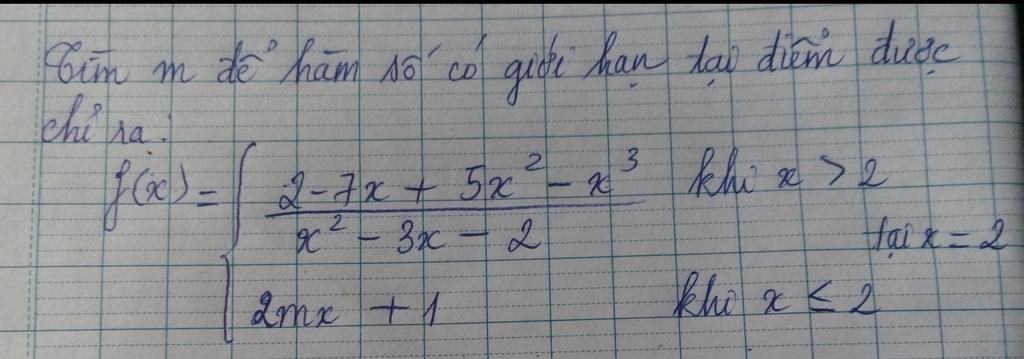 Tìm m để hàm số có giới hạn tại điểm được
chỉ ra:
f(x) = { (2 - 7x + 5x² - x³) / (x² - 3x - 2) khi x > 2
tại x = 2
2mx + 1 khi x ≤ 2